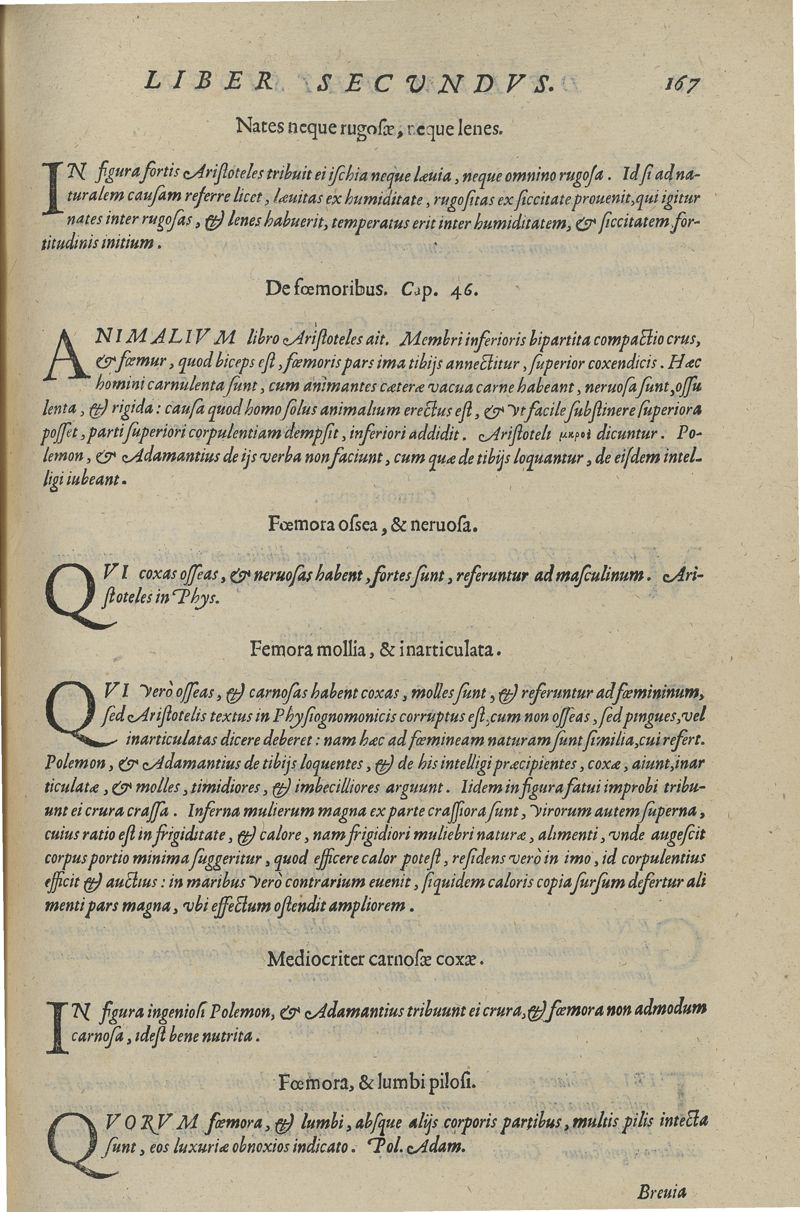 LIBER SECVNDVS. 167
Nates neque rugosæ, neque lenes.
IN figura fortis Aristoteles tribuit ei ischia neque læuia, neque omnino rugosa. Id si ad na-
turalem causam referre licet, læuitas ex humiditate, rugositas ex siccitate prouenit, qui igitur
nates inter rugosas, & lenes habuerit, temperatus erit inter humiditatem, & siccitatem, for-
titudinis initium.
De fœmoribus. Cap. 46.
ANIMALIVM libro Aristoteles ait. Membri inferioris bipartita compactio crus,
& fœmur, quod biceps est, fœmoris pars ima tibijs annectitur, superior coxendicis. Hæc
homini carnulenta sunt, cum animantes cæteræ vacua carne habeant, neruosa sunt, ossu
lenta, & rigida: causa quod homo solus animalium erectus est, & vt facile substinere superiora
posset, parti superiori corpulentiam dempsit, inferiori addidit. Aristoteli μηροὶ dicuntur. Po-
lemon, & Adamantius de ijs verba non faciunt, cum quæ de tibijs loquantur, de eisdem intel-
ligi iubeant.
Fœmora ossea, & neruosa.
QVI coxas osseas, & neruosas habent, fortes sunt, referuntur ad masculinum. Ari-
stoteles in Phys.
Femora mollia, & inarticulata.
QVI verò osseas, & carnosas habent coxas, molles sunt, & referuntur ad fœmininum,
sed Aristotelis textus in Physiognomonicis corruptus est, cum non osseas, sed pingues, vel
inarticulatas dicere deberet: nam hæc ad fœmineam naturam sunt similia, cui refert.
Polemon, & Adamantius de tibijs loquentes, & de his intelligi præcipientes, coxæ, aiunt, inar
ticulatæ, & molles, timidiores, & imbecilliores arguunt. Iidem in figura fatui improbi tribu-
unt ei crura crassa. Inferna mulierum magna ex parte crassiora sunt, virorum autem superna,
cuius ratio est in frigiditate, & calore, nam frigidiori muliebri naturæ, alimenti, vnde augescit
corpus portio minima suggeritur, quod efficere calor potest, residens verò in imo, id corpulentius
efficit & auctius: in maribus verò contrarium euenit, siquidem caloris copia sursum defertur ali
menti pars magna, vbi effectum ostendit ampliorem.
Mediocriter carnosæ coxæ.
IN figura ingeniosi Polemon, & Adamantius tribuunt ei crura, & fœmora non admodum
carnosa, idest bene nutrita.
Fœmora, & lumbi pilosi.
QVORVM fœmora, & lumbi, absque alijs corporis partibus, multis pilis intecta
sunt, eos luxuriæ obnoxios indicato. Pol. Adam.
Breuia